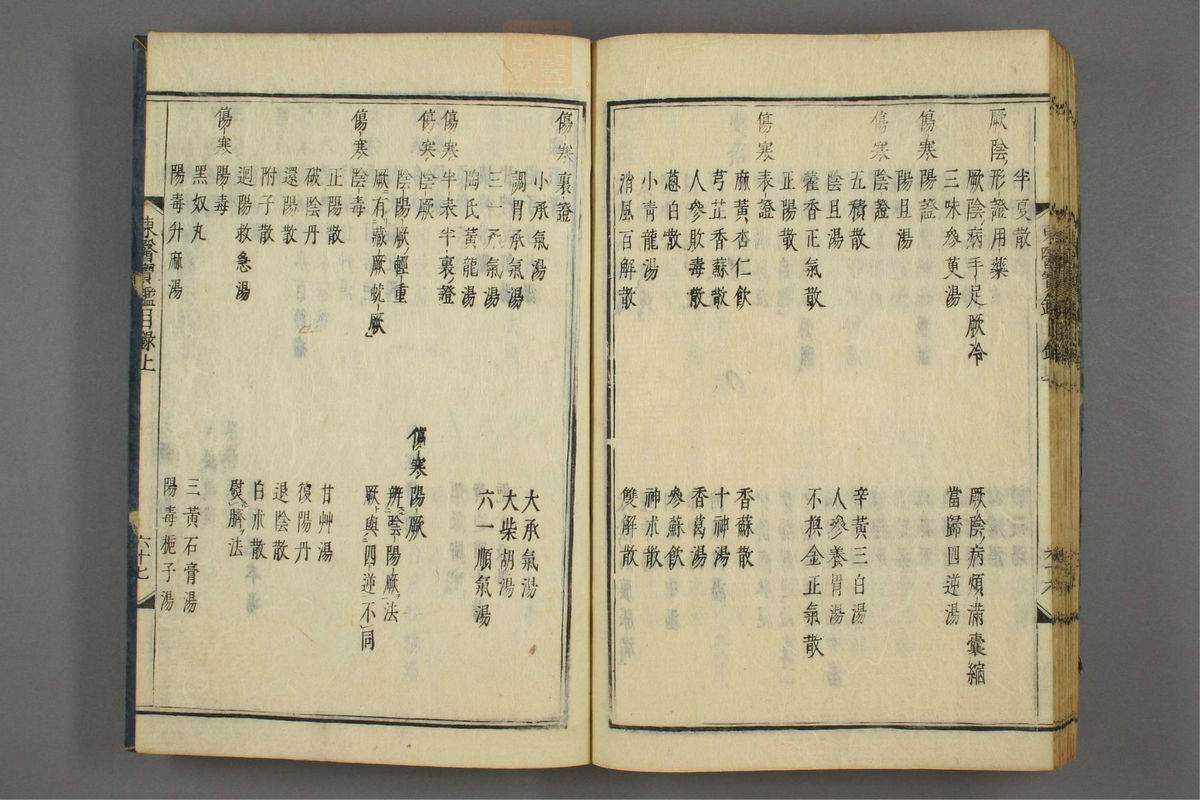 半夏散
厥陰形證用藥
厥陰病手足厥冷
厥陰病煩滿囊縮
三味參萸湯
當歸四逆湯
傷寒陽證
陽旦湯
傷寒陰證
五積散
辛黃三白湯
陰旦湯
人參養胃湯
藿香正氣散
不換金正氣散
正陽散
傷寒表證
麻黃杏仁飲
香蘇散
芎芷香蘇散
十神湯
人參敗毒散
香葛湯
蔥白散
參蘇飲
小靑龍湯
神朮散
消風百解散
雙解散
傷寒裏證
小承氣湯
大承氣湯
調胃承氣湯
大柴胡湯
三一承氣湯
六一順氣湯
陶氏黃龍湯
傷寒半表半裏證
傷寒陰厥
傷寒陽厥
陰陽厥輕重
辨陰陽厥法
厥有藏厥蚘厥
厥與四逆不同
傷寒陰毒
正陽散
甘艸湯
破陰丹
復陽丹
還陽散
退陰散
附子散
白朮散
迴陽救急湯
熨臍法
傷寒陽毒
黑奴丸
三黃石膏湯
陽毒升麻湯
陽毒梔子湯
東醫寶鑑目錄上
六十七